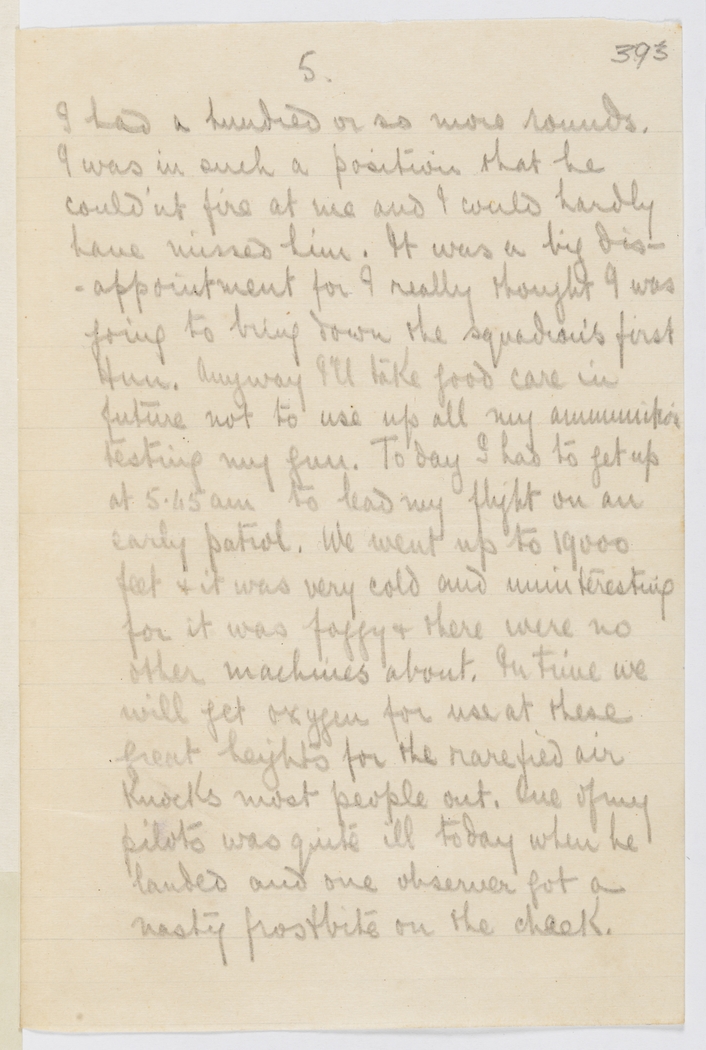 5.
393
I had a hundred or so more rounds.
I was in such a position that he
could'nt fire at me and I could hardly
have missed him. It was a big dis-
-appointment for I really thought I was
going to bring down the squadron's first
Hun. Anyway I'll take good care in
future not to use up all my ammunition
testing my gun. Today I had to get up
at 5.45 am to lead my flight on an
early patrol. We went up to 19000
feet & it was very cold and uninteresting
for it was foggy & there were no
other machines about. In time we
will get oxygen for use at these
great heights for the rarefied air
knocks most people out. One of my
pilots was quite ill today when he
landed and one observer got a
nasty frostbite on the cheek.